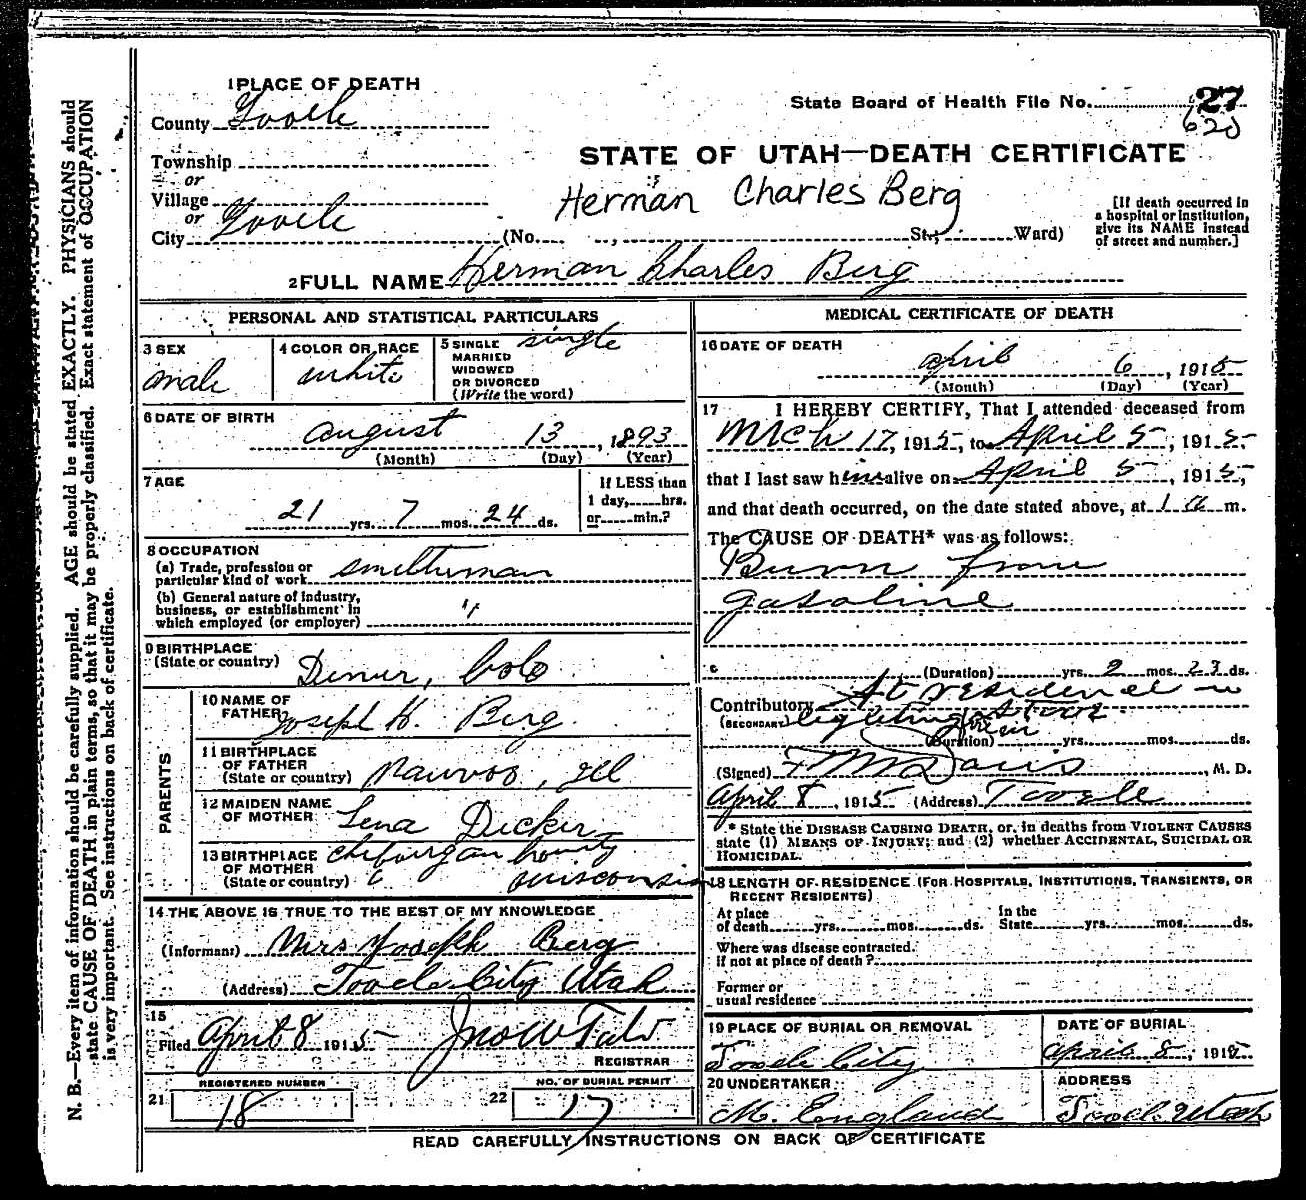 1 PLACE OF DEATH
County Tooele
State Board of Health File No. 27
620
Township
or
Village
or
City Tooele (No. , St.; Ward)
STATE OF UTAH—DEATH CERTIFICATE
Herman Charles Berg
[If death occurred in
a hospital or institution,
give its NAME instead
of street and number.]
2 FULL NAME Herman Charles Berg
PERSONAL AND STATISTICAL PARTICULARS
3 SEX
male
4 COLOR OR RACE
white
5 SINGLE single
MARRIED
WIDOWED
OR DIVORCED
(Write the word)
6 DATE OF BIRTH
august 13, 1893
(Month) (Day) (Year)
7 AGE
21 yrs. 7 mos. 24 ds.
If LESS than
1 day, hrs.
or min.?
8 OCCUPATION
(a) Trade, profession or
particular kind of work smelterman
(b) General nature of industry,
business, or establishment in
which employed (or employer) "
9 BIRTHPLACE
(State or country) Denver, Colo
PARENTS
10 NAME OF
FATHER Joseph H. Berg
11 BIRTHPLACE
OF FATHER
(State or country) Nauvoo, Ill
12 MAIDEN NAME
OF MOTHER Lena Decker
13 BIRTHPLACE
OF MOTHER
(State or country) county wisconsin
14 THE ABOVE IS TRUE TO THE BEST OF MY KNOWLEDGE
(Informant) Mrs Joseph Berg
(Address) Tooele City Utah
15
Filed April 8 1915 Jno W Tate
REGISTRAR
21 REGISTERED NUMBER
18
22 NO. OF BURIAL PERMIT
17
MEDICAL CERTIFICATE OF DEATH
16 DATE OF DEATH
april 6, 1915
(Month) (Day) (Year)
17 I HEREBY CERTIFY, That I attended deceased from
Mch 17, 1915, to April 5, 1915,
that I last saw him alive on April 5, 1915,
and that death occurred, on the date stated above, at 1 a m.
The CAUSE OF DEATH* was as follows:
Burn from
gasoline
(Duration) yrs. 2 mos. 23 ds.
Contributory At residence in
(SECONDARY) lighting
(Duration) yrs. mos. ds.
(Signed) F M Davis, M. D.
April 8, 1915 (Address) Tooele
* State the DISEASE CAUSING DEATH, or, in deaths from VIOLENT CAUSES
state (1) MEANS OF INJURY; and (2) whether ACCIDENTAL, SUICIDAL OR
HOMICIDAL.
18 LENGTH OF RESIDENCE (FOR HOSPITALS, INSTITUTIONS, TRANSIENTS, OR
RECENT RESIDENTS)
At place
of death yrs. mos. ds.
In the
State yrs. mos. ds.
Where was disease contracted.
if not at place of death?
Former or
usual residence
19 PLACE OF BURIAL OR REMOVAL
Tooele City
DATE OF BURIAL
april 8, 1915
20 UNDERTAKER
M. England
ADDRESS
Tooele Utah
READ CAREFULLY INSTRUCTIONS ON BACK OF CERTIFICATE
N. B.—Every item of information should be carefully supplied. AGE should be stated EXACTLY. PHYSICIANS should
state CAUSE OF DEATH in plain terms, so that it may be properly classified. Exact statement of OCCUPATION
is very important. See instructions on back of certificate.